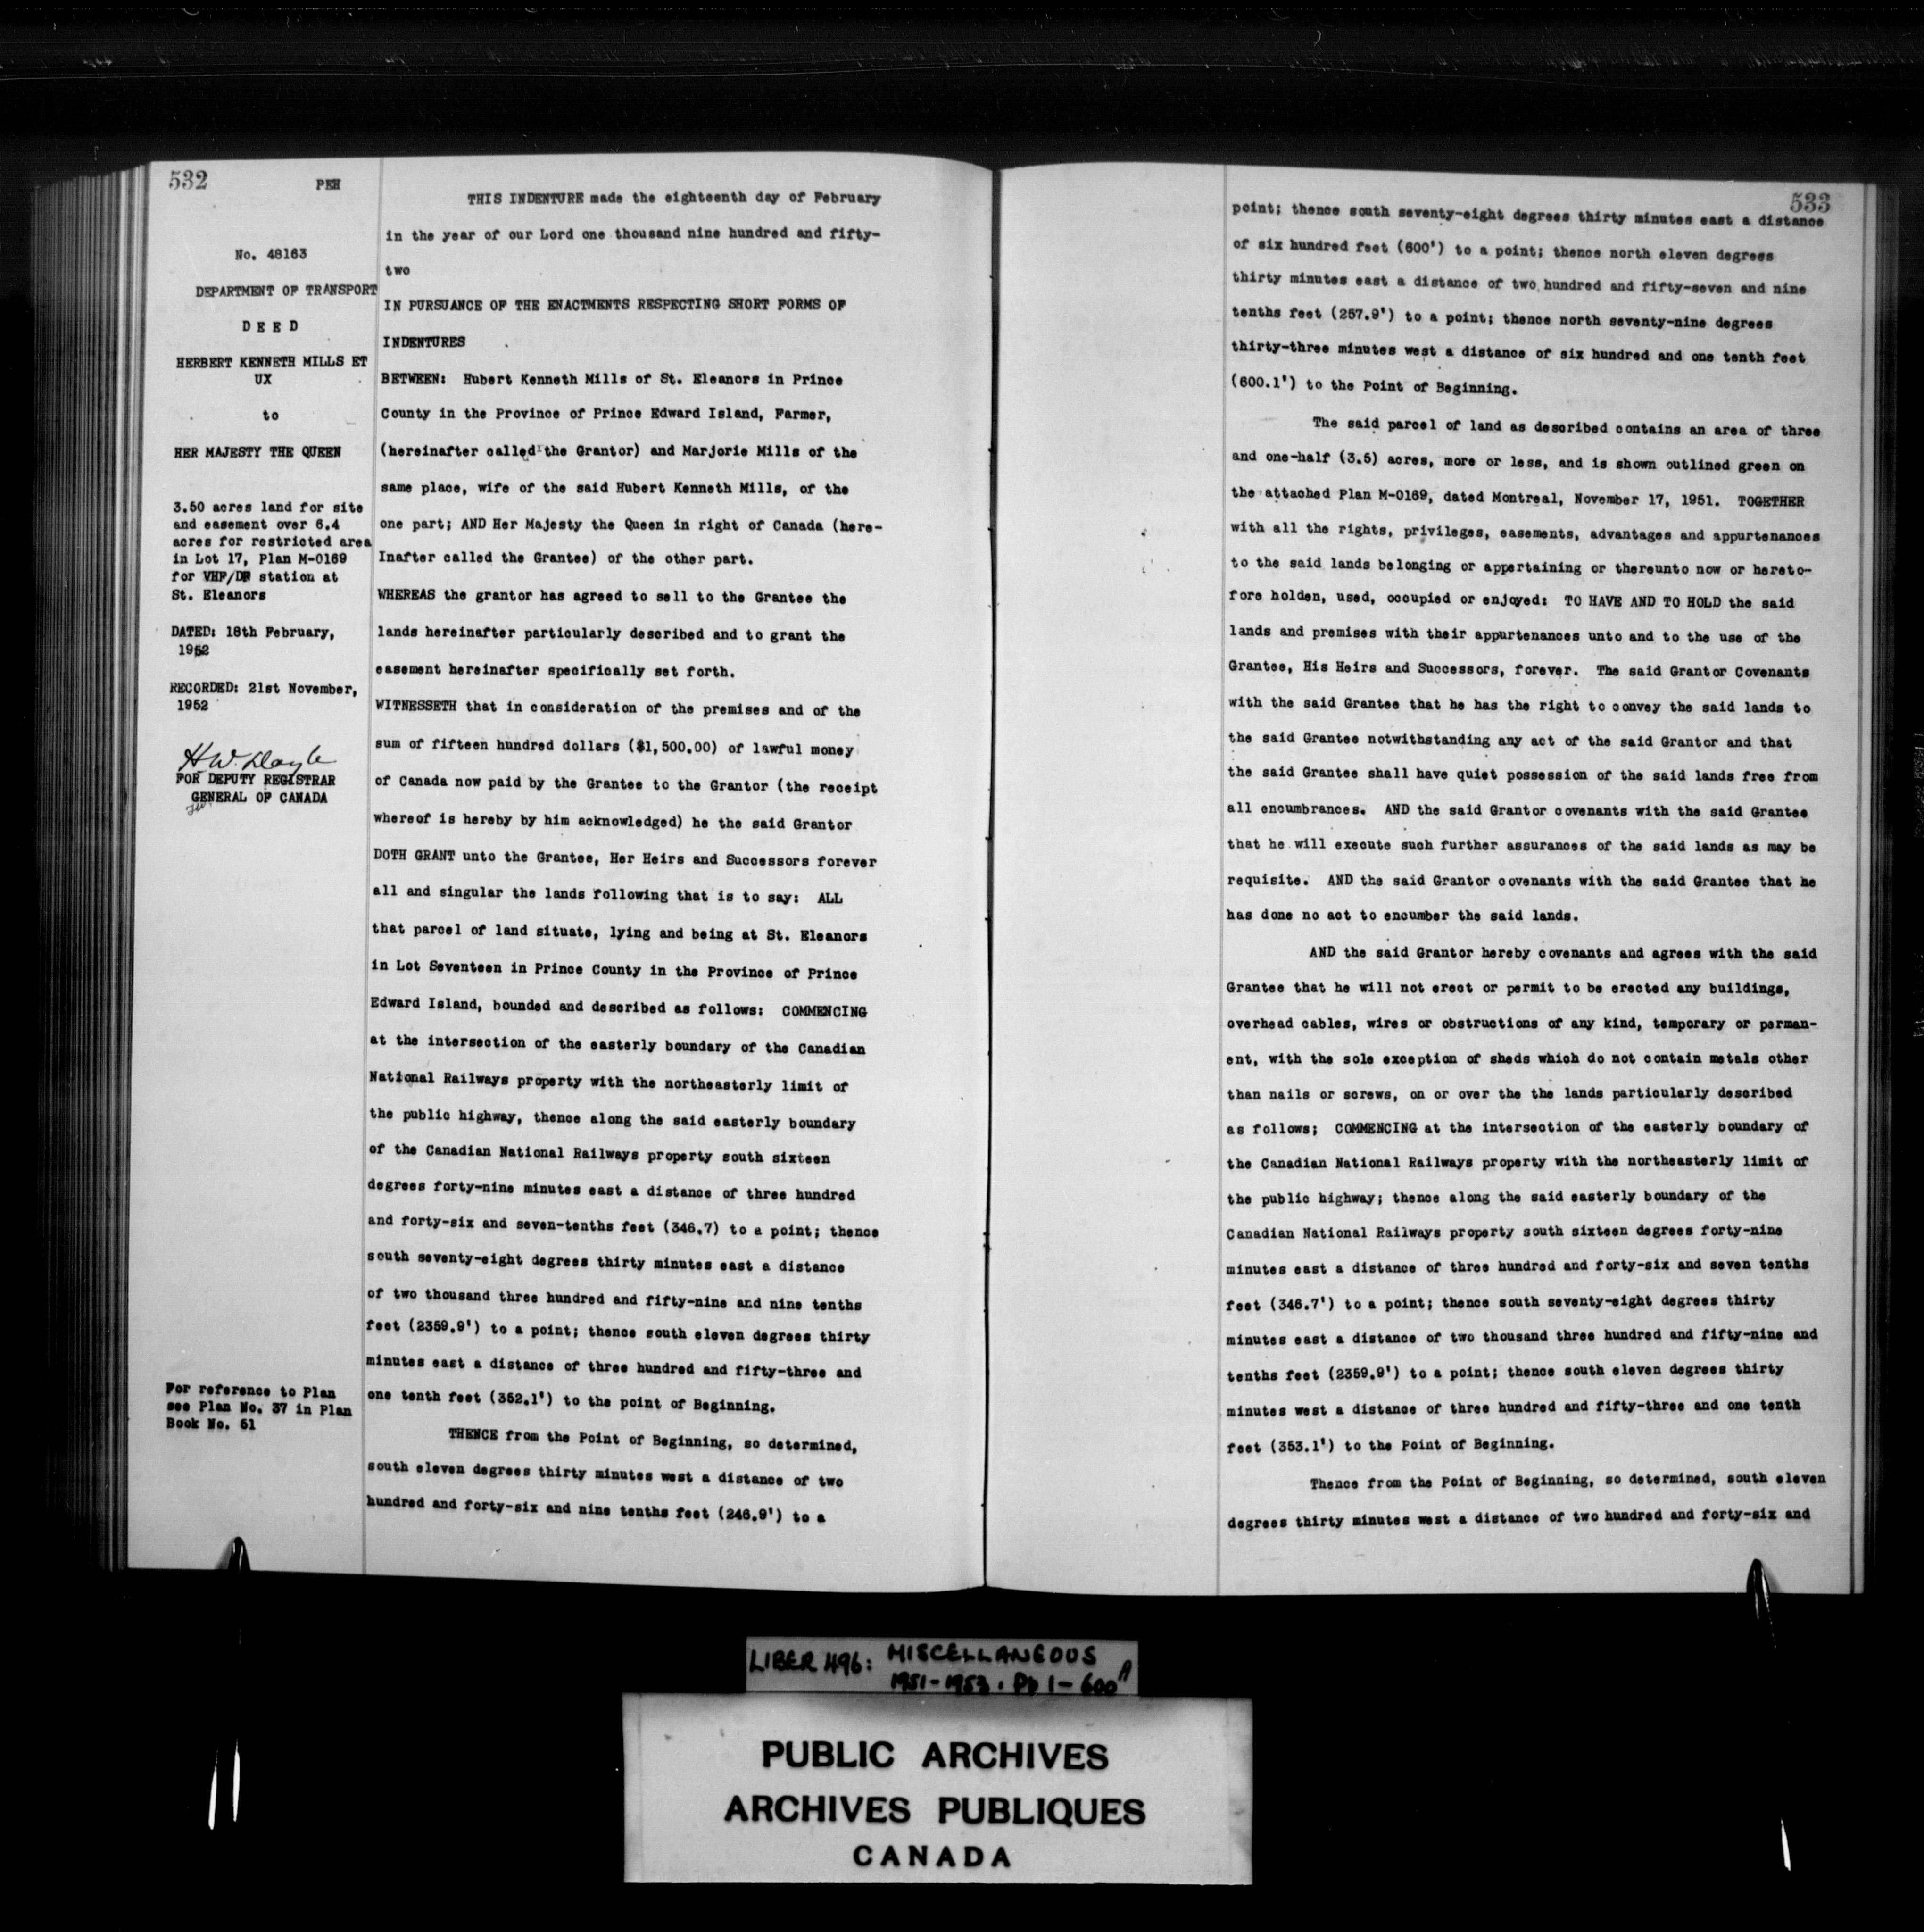 532
PEH
No. 48163
DEPARTMENT OF TRANSPORT
D E E D
HERBERT KENNETH MILLS ET
UX
to
HER MAJESTY THE QUEEN
3.50 acres land for site
and easement over 6.4
acres for restricted area
in Lot 17, Plan M-0169
for VHF/DF station at
St. Eleanors
DATED: 18th February,
1952
RECORDED: 21st November,
1952
FOR DEPUTY REGISTRAR
GENERAL OF CANADA
For reference to Plan
see Plan No. 37 in Plan
Book No. 51
THIS INDENTURE made the eighteenth day of February
in the year of our Lord one thousand nine hundred and fifty-
two
IN PURSUANCE OF THE ENACTMENTS RESPECTING SHORT FORMS OF
INDENTURES
BETWEEN: Hubert Kenneth Mills of St. Eleanors in Prince
County in the Province of Prince Edward Island, Farmer,
(hereinafter called the Grantor) and Marjorie Mills of the
same place, wife of the said Hubert Kenneth Mills, of the
one part; AND Her Majesty the Queen in right of Canada (here-
Inafter called the Grantee) of the other part.
WHEREAS the grantor has agreed to sell to the Grantee the
lands hereinafter particularly described and to grant the
easement hereinafter specifically set forth.
WITNESSETH that in consideration of the premises and of the
sum of fifteen hundred dollars ($1,500.00) of lawful money
of Canada now paid by the Grantee to the Grantor (the receipt
whereof is hereby by him acknowledged) he the said Grantor
DOTH GRANT unto the Grantee, Her Heirs and Successors forever
all and singular the lands following that is to say: ALL
that parcel of land situate, lying and being at St. Eleanors
in Lot Seventeen in Prince County in the Province of Prince
Edward Island, bounded and described as follows: COMMENCING
at the intersection of the easterly boundary of the Canadian
National Railways property with the northeasterly limit of
the public highway, thence along the said easterly boundary
of the Canadian National Railways property south sixteen
degrees forty-nine minutes east a distance of three hundred
and forty-six and seven-tenths feet (346.7) to a point; thence
south seventy-eight degrees thirty minutes east a distance
of two thousand three hundred and fifty-nine and nine tenths
feet (2359.9') to a point; thence south eleven degrees thirty
minutes east a distance of three hundred and fifty-three and
one tenth feet (352.1') to the point of Beginning.
THENCE from the Point of Beginning, so determined,
south eleven degrees thirty minutes west a distance of two
hundred and forty-six and nine tenths feet (246.9') to a
533
point; thence south seventy-eight degrees thirty minutes east a distance
of six hundred feet (600') to a point; thence north eleven degrees
thirty minutes east a distance of two hundred and fifty-seven and nine
tenths feet (257.9') to a point; thence north seventy-nine degrees
thirty-three minutes west a distance of six hundred and one tenth feet
(600.1') to the Point of Beginning.
The said parcel of land as described contains an area of three
and one-half (3.5) acres, more or less, and is shown outlined green on
the attached Plan M-0169, dated Montreal, November 17, 1951. TOGETHER
with all the rights, privileges, easements, advantages and appurtenances
to the said lands belonging or appertaining or thereunto now or hereto-
fore holden, used, occupied or enjoyed: TO HAVE AND TO HOLD the said
lands and premises with their appurtenances unto and to the use of the
Grantee, His Heirs and Successors, forever. The said Grantor Covenants
with the said Grantee that he has the right to convey the said lands to
the said Grantee notwithstanding any act of the said Grantor and that
the said Grantee shall have quiet possession of the said lands free from
all encumbrances. AND the said Grantor covenants with the said Grantee
that he will execute such further assurances of the said lands as may be
requisite. AND the said Grantor covenants with the said Grantee that he
has done no act to encumber the said lands.
AND the said Grantor hereby covenants and agrees with the said
Grantee that he will not erect or permit to be erected any buildings,
overhead cables, wires or obstructions of any kind, temporary or perman-
ent, with the sole exception of sheds which do not contain metals other
than nails or screws, on or over the the lands particularly described
as follows; COMMENCING at the intersection of the easterly boundary of
the Canadian National Railways property with the northeasterly limit of
the public highway; thence along the said easterly boundary of the
Canadian National Railways property south sixteen degrees forty-nine
minutes east a distance of three hundred and forty-six and seven tenths
feet (346.7') to a point; thence south seventy-eight degrees thirty
minutes east a distance of two thousand three hundred and fifty-nine and
tenths feet (2359.9') to a point; thence south eleven degrees thirty
minutes west a distance of three hundred and fifty-three and one tenth
feet (353.1') to the Point of Beginning.
Thence from the Point of Beginning, so determined, south eleven
degrees thirty minutes west a distance of two hundred and forty-six and
LIBER 496: MISCELLANEOUS
1951-1953. Pp 1-600 A
PUBLIC ARCHIVES
ARCHIVES PUBLIQUES
CANADA